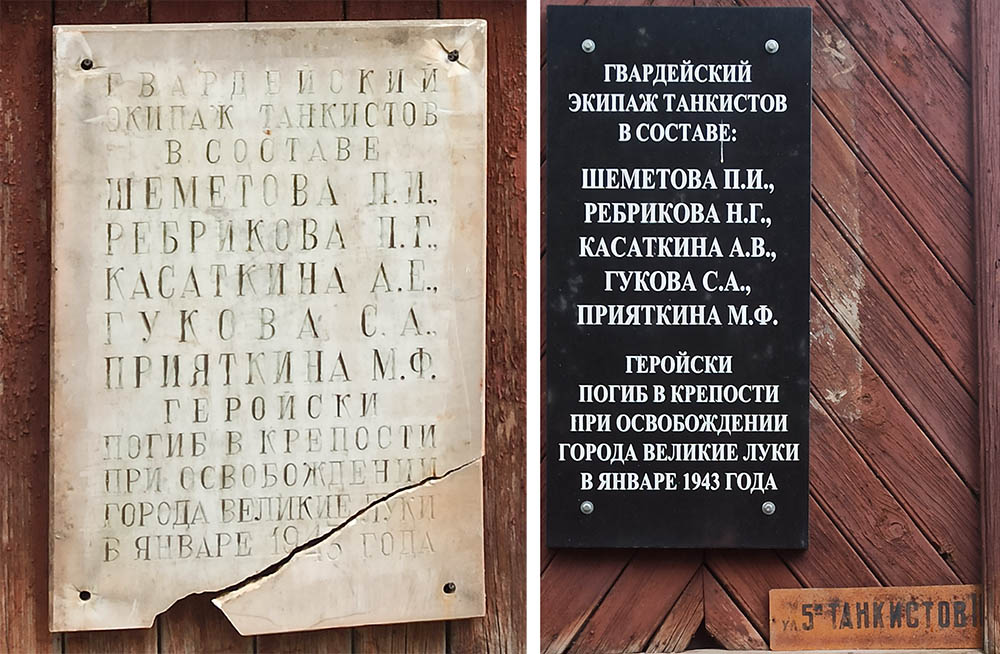 ГВАРДЕЙСКИЙ
ЭКИПАЖ ТАНКИСТОВ
В СОСТАВЕ
ШЕМЕТОВА П.И.,
РЕБРИКОВА Н.Г.,
КАСАТКИНА А.Е.,
ГУКОВА С.А.,
ПРИЯТКИНА М.Ф.
ГЕРОЙСКИ
ПОГИБ В КРЕПОСТИ
ПРИ ОСВОБОЖДЕНИИ
ГОРОДА ВЕЛИКИЕ ЛУКИ
В ЯНВАРЕ 1943 ГОДА
ГВАРДЕЙСКИЙ
ЭКИПАЖ ТАНКИСТОВ
В СОСТАВЕ:
ШЕМЕТОВА П.И.,
РЕБРИКОВА Н.Г.,
КАСАТКИНА А.В.,
ГУКОВА С.А.,
ПРИЯТКИНА М.Ф.
ГЕРОЙСКИ
ПОГИБ В КРЕПОСТИ
ПРИ ОСВОБОЖДЕНИИ
ГОРОДА ВЕЛИКИЕ ЛУКИ
В ЯНВАРЕ 1943 ГОДА
ул. 5и ТАНКИСТОВ